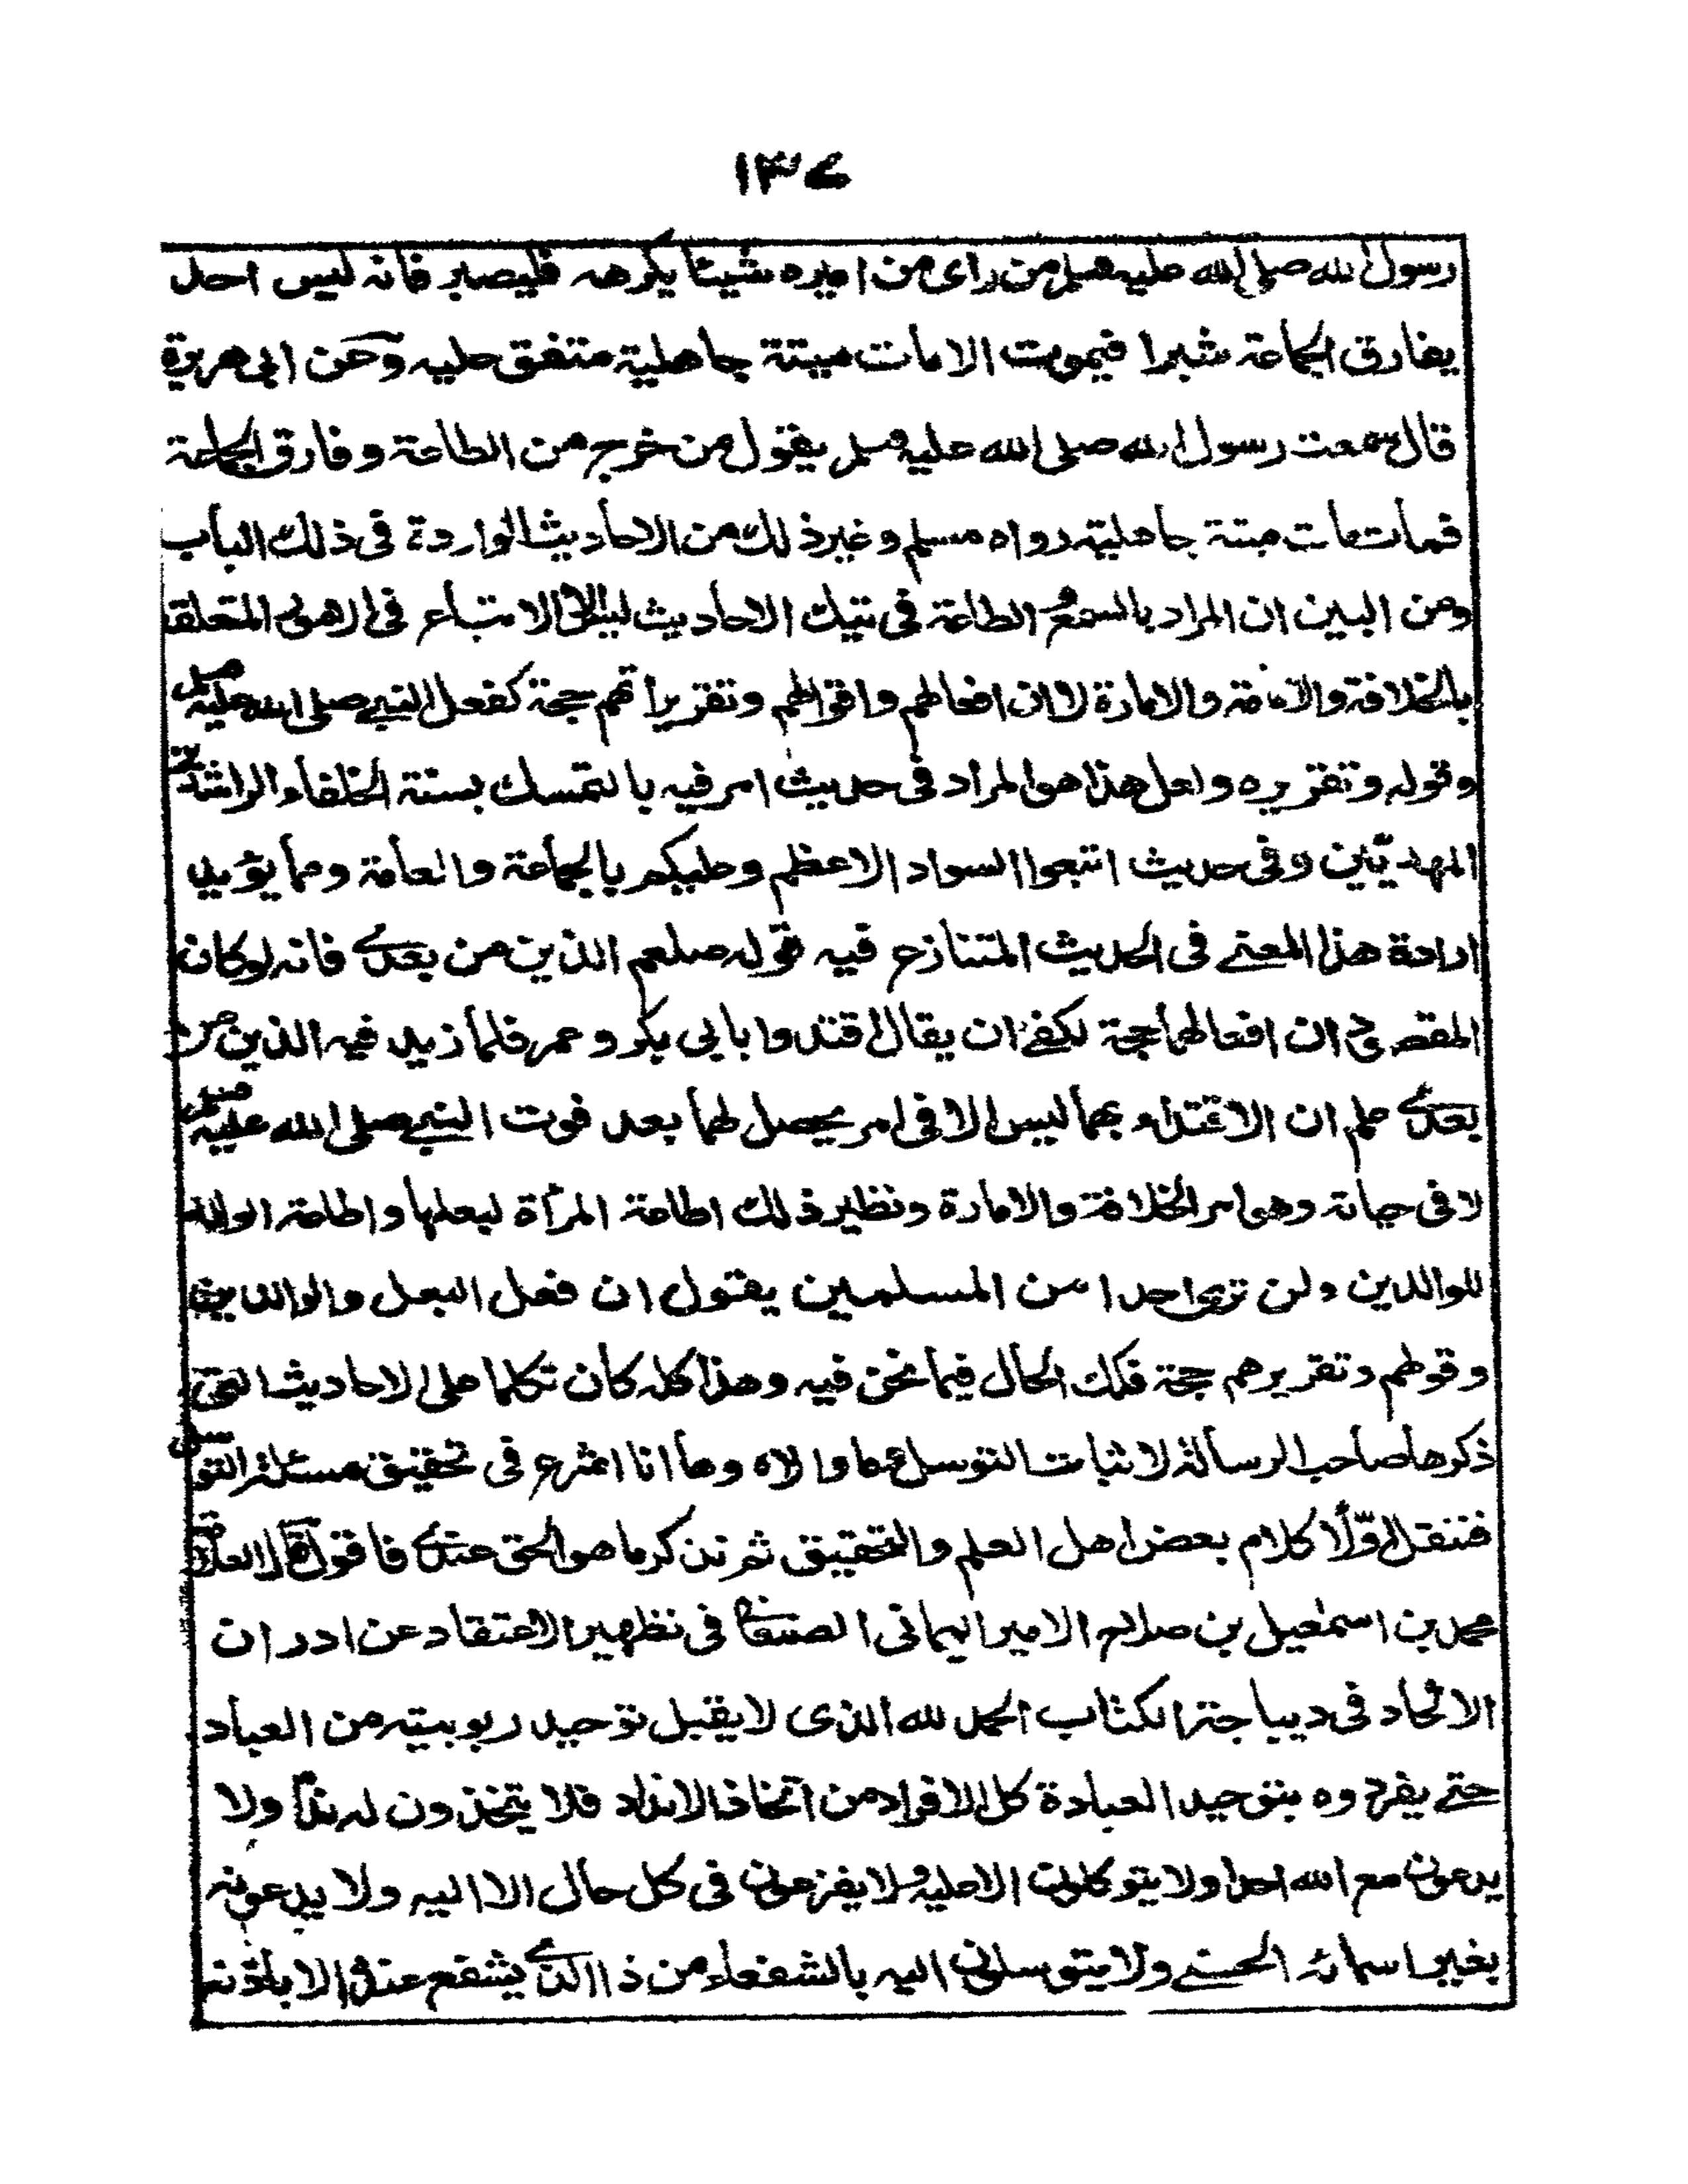 ١٣٧
رسول الله صلى الله عليه وسلم من راى من اميره شيئا يكرهه فليصبر فانه ليس احد
يفارق الجماعة شبرا فيموت الامات ميتة جاهلية متفق عليه وعن ابى هريرة
قال سمعت رسول الله صلى الله عليه وسلم يقول من خرج من الطاعة وفارق الجماعة
فمات مات ميتة جاهلية رواه مسلم وغير ذلك من الاحاديث الواردة فى ذلك الباب
ومن البين ان المراد بالسمع والطاعة فى تيك الاحاديث ليس الا الاتباع فى الامور المتعلقة
بالخلافة والامامة والامارة لا ان افعالهم واقوالهم وتقريراتهم حجة كفعل النبى صلى الله عليه وسلم
وقوله وتقريره ولعل هذا هو المراد فى حديث امر فيه بالتمسك بسنة الخلفاء الراشدين
المهديين وفى حديث اتبعوا السواد الاعظم وعليكم بالجماعة والعامة ومما يؤيد
ارادة هذا المعنى فى الحديث المتنازع فيه قوله صلعم الذين من بعدى فانه لو كان
المقصود ان افعالهما حجة لكفى ان يقال اقتدوا بابى بكر وعمر فلما زيد فيه الذين من
بعدى علم ان الاقتداء بهما ليس الا فى امر يحصل لهما بعد فوت النبى صلى الله عليه وسلم
لا فى حياته وهو امر الخلافة والامارة ونظير ذلك اطاعة المرأة لبعلها واطاعة الولد
للوالدين ولن ترى احدا من المسلمين يقول ان فعل البعل والوالدين
وقولهم وتقريرهم حجة فكذلك الحال فيما نحن فيه وهذا كله كان تكلما على الاحاديث التى
ذكرها صاحب الرسالة لاثبات التوسل وما والاه وها انا اشرع فى تحقيق مسئلة التوسل
فننقل اولا كلام بعض اهل العلم والتحقيق ثم نذكر ما هو الحق عندى فاقول قال العلامة
محمد بن اسمٰعيل بن صلاح الامير اليمانى الصنعانى فى تطهير الاعتقاد عن ادران
الالحاد فى ديباجة الكتاب الحمد لله الذى لا يقبل توحيد ربوبيته من العباد
حتى يفردوه بتوحيد العبادة كل الافراد من اتخاذ الانداد فلا يتخذون له ندا ولا
يدعون مع الله احدا ولا يتوكلون الا عليه ولا يفزعون فى كل حال الا اليه ولا يدعونه
بغير اسمائه الحسنى ولا يتوسلون اليه بالشفعاء من ذا الذى يشفع عنده الا باذنه